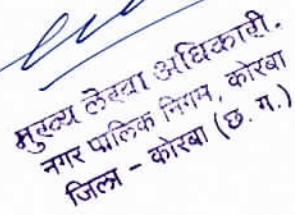 मुख्य लेखा अधिकारी.
नगर पालिक निगम, कोरबा
जिला - कोरबा (छ. ग.)